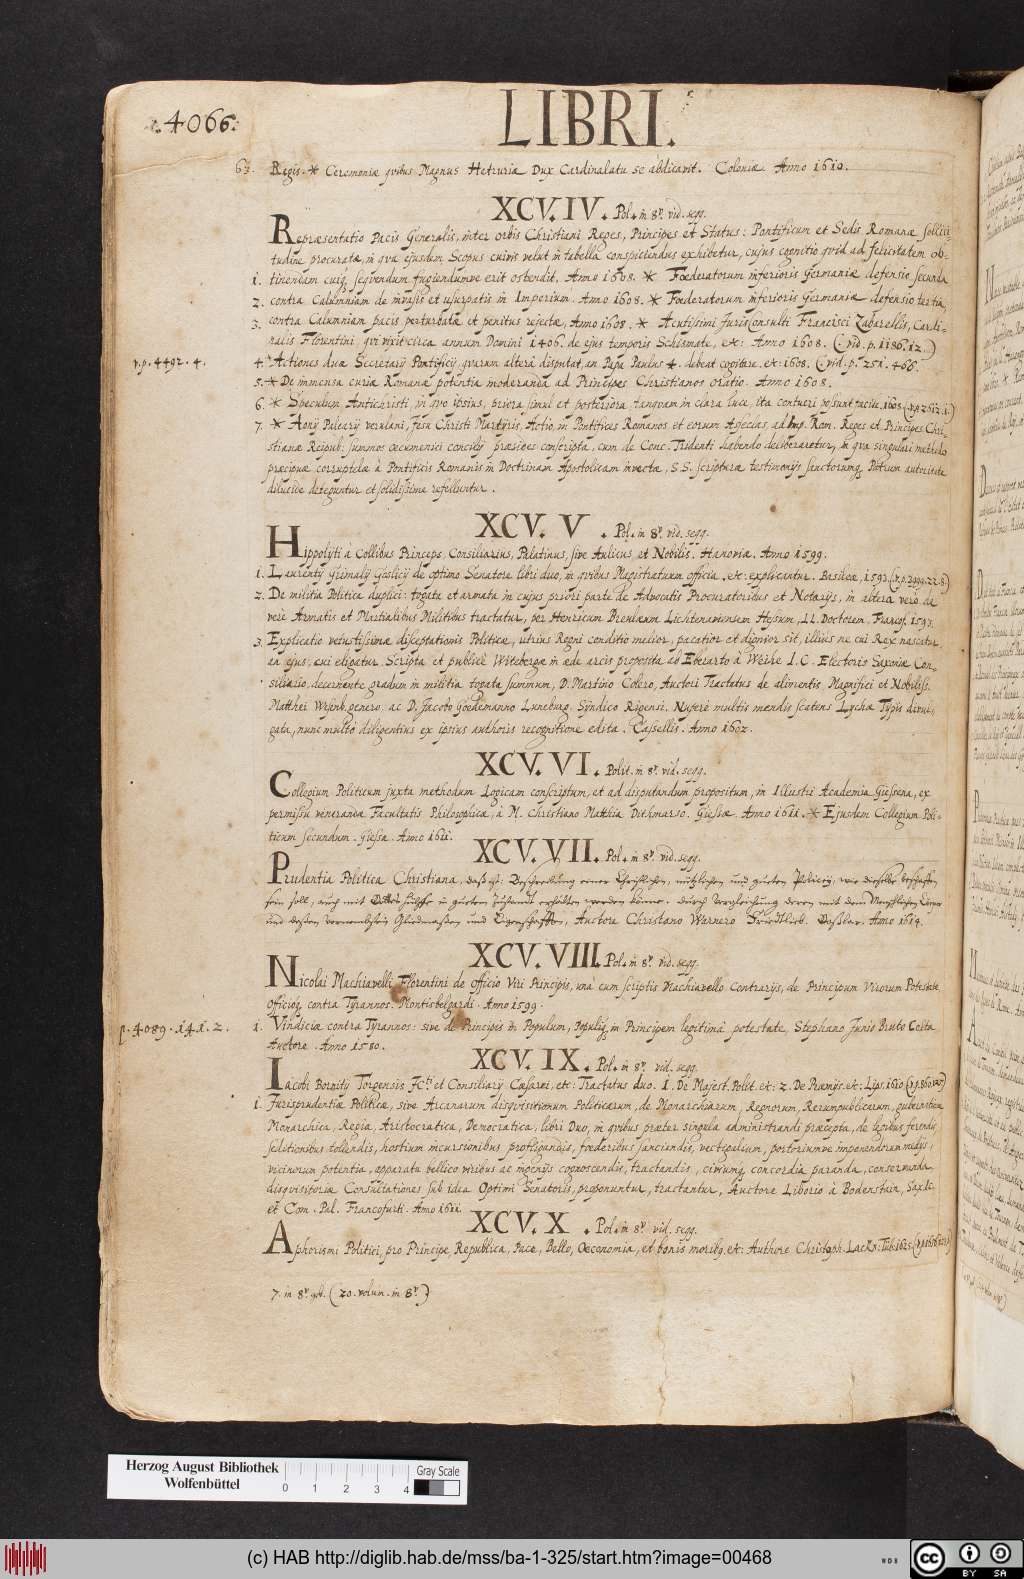 4066.
LIBRI.
63. Regis. * Ceremoniæ qvibus Magnus Hetruriæ Dux Cardinalatu se abdicavit. Coloniæ Anno 1610.
XCV. IV. Pol. in 8° vid. seqq.
Repræsentatio Pacis Generalis, inter orbis Christiani Reges, Principes et Status: Pontificum et Sedis Romanæ sollici-
tudine procurata, in qva ejusdem Scopus cuivis velut in tabella conspiciendus exhibetur, cujus cognitio qvid ad felicitatem ob-
1. tinendam cuiq; seqvendum fugiendumve erit ostendit. Anno 1608. * Fœderatorum inferioris Germaniæ defensio secunda
2. contra Calumniam de invasis et usurpatis in Imperium. Anno 1608. * Fœderatorum inferioris Germaniæ defensio tertia,
3. contra Calumniam pacis perturbatæ et penitus rejectæ, Anno 1608. * Acutissimi Jurisconsulti Francisci Zabarellis, Cardi-
nalis Florentini, qvi vixit circa annum Domini 1406. de ejus temporis Schismate, etc: Anno 1608. (vid. p. 1186. 12.)
v.p. 4492. 4.
4. * Actiones duæ Secretarij Pontificij, qvarum altera disputat, an Papa Paulus 4. debeat cogitare, etc. 1608. (vid. p. 251. 466.
5. * De immensa curiæ Romanæ potentia moderanda ad Principes Christianos oratio. Anno 1608.
6. * Speculum Antichristi, in qvo ipsius, priora simul et posteriora, tanqvam in clara luce, ita contueri possunt facile. 1605. (v.p. 2512. 1.)
7. * Aonij Palearij verulani, Jesu Christi Martyris, Actio, in Pontifices Romanos et eorum Asseclas, ad Imp. Rom. Reges et Principes Chri-
stianæ Reipub: summos œcumenici concilij præsides conscripta, cum de Conc. Tridenti habendo deliberaretur, in qva singulari methodo
præcipuæ corruptelæ à Pontificis Romanis in Doctrinam Apostolicam invectæ, S.S. scripturæ testimonijs sanctorumq; Patrum autoritate
dilucide deteguntur et solidissime refelluntur.
XCV. V. Pol. in 8° vid. seqq.
Hippolyti à Collibus Princeps, Consiliarius, Palatinus, sive Aulicus, et Nobilis. Hanoviæ. Anno 1599.
1. Laurentij Grimalij Goslicij de optimo Senatore libri duo, in qvibus Magistratuum officia, etc: explicantur. Basileæ, 1593. (v.p. 3999. 22. 8.)
2. De militia Politica duplici: togata et armata in cujus priori parte de Advocatis Procuratoribus et Notarijs, in altera vero de
vere Armatis et Martialibus Militibus tractatur, per Henricum Brenlæum Lichtenavensem Hessum, LL. Doctorem. Francof. 1593.
3. Explicatio vetustissimæ disceptationis Politicæ, utrius Regni conditio melior, pacatior et dignior sit, illius ne cui Rex nascitur
an ejus, cui eligatur. Scripta et publice Witebergæ in æde arcis proposita ab Eberarto à Weihe I.C. Electoris Saxoniæ Con-
siliario, decernente gradum in militia togata summum, D. Martino Colero, Auctori Tractatus de alimentis Magnifici et Nobiliss.
Matthei Wesenb. genero, ac D. Jacobo Goedemanno Luneburg. Syndico Rigensi. Nuperè multis mendis scatens Lychæ Typis divul-
gata, nunc multo diligentius ex ipsius authoris recognitione edita. Cassellis. Anno 1602.
XCV. VI. Polit. in 8° vid. seqq.
Collegium Politicum juxta methodum Logicam conscriptum, et ad disputandum propositum, in Illustri Academia Giessena, ex
permissu venerandæ Facultatis Philosophicæ, à M. Christiano Matthia Dithmarso. Giessæ. Anno 1611. * Ejusdem Collegium Poli-
ticum secundum. Giessæ. Anno 1611.
XCV. VII. Pol. in 8° vid. seqq.
Prudentia Politica Christiana, das ist: Beschreibung einer Christlichen, nützlichen und guten Policey, wie dieselbe beschaffen
sein soll, auch mit Gottes hülffe in gutem zustande erhalten werden könne. durch vergleichung deren mit dem Menschlichen Cörper
und dessen vornembsten Gliedmassen und Eigenschafften, Auctore Christiano Warnero Friedtlieb. Goßlar. Anno 1614.
XCV. VIII. Pol. in 8° vid. seqq.
Nicolai Machiavelli Florentini de officio Viri Principis, una cum scriptis Machiavello Contrarijs, de Principum Virorum Potestate,
Officioq; contra Tyrannos. Montisbelgardi. Anno 1599.
p. 4089. 141. 2.
1. Vindiciæ contra Tyrannos: sive de Principis in Populum, Populiq; in Principem legitima potestate, Stephano Junio Bruto Celta
Auctore. Anno 1580.
XCV. IX. Pol. in 8° vid. seqq.
Iacobi Bornity Torgensis JCti et Consiliarij Cæsarei, etc: Tractatus duo. 1. De Majest. Polit. etc: 2. De Præmijs etc: Lips. 1610
1. Jurisprudentiæ Politicæ, sive Arcanarum disqvisitionum Politicarum, de Monarchiarum, Regnorum, Rerumpublicarum, gubernatione
Monarchica, Regia, Aristocratica, Democratica, libri Duo, in qvibus præter singula administrandi præcepta, de legibus ferendis,
seditionibus tollendis, hostium incursionibus profligandis, fœderibus sanciendis, vectigalium, portoriumve imponendorum modis,
vicinorum potentia, apparatu bellico viribus ac ingenijs cognoscendis, tractandis, civiumq; concordia paranda, conservanda
disqvisitoriæ Consultationes sub idea Optimi Senatoris, proponuntur, tractantur, Auctore Liborio à Bodenstein, Sax. Ic.
et Com. Pal. Francofurti. Anno 1611.
XCV. X. Pol. in 8° vid. seqq.
Aphorismi Politici, pro Principe, Republica, Pace, Bello, Œconomia, et bonis moribq; etc: Authore Christoph. Lackn: Tub. 1625.
7. in 8° (20. volum. in 8°)
Herzog August Bibliothek
Wolfenbüttel
0 1 2 3 4
Gray Scale
(c) HAB http://diglib.hab.de/mss/ba-1-325/start.htm?image=00468
WDB
cc BY SA